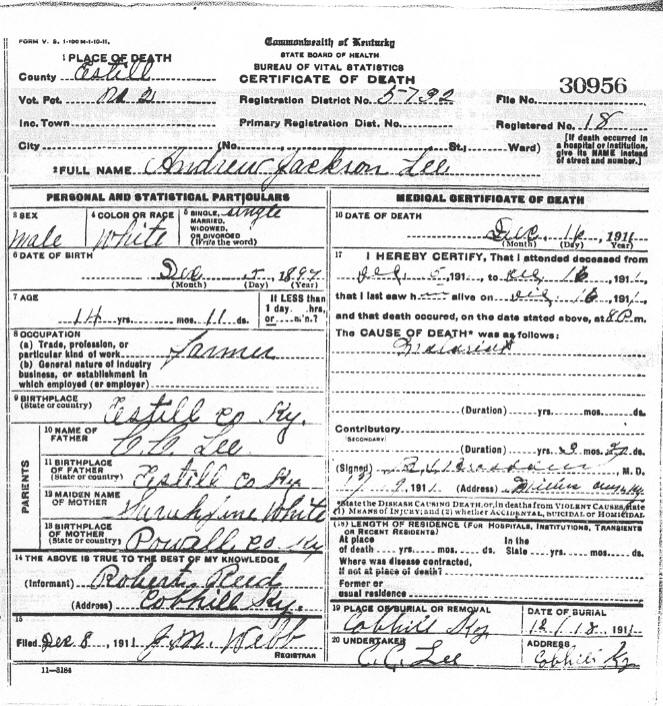 FORM V. S. 1-100 M-1-10-11.
Commonwealth of Kentucky
STATE BOARD OF HEALTH
BUREAU OF VITAL STATISTICS
CERTIFICATE OF DEATH
1 PLACE OF DEATH
County Estill
Vot. Pct. No 2
Inc. Town
City (No. St.; Ward)
Registration District No. 5732
Primary Registration Dist. No.
30956
File No.
Registered No. 18
[If death occurred in a hospital or institution, give its NAME instead of street and number.]
2 FULL NAME Andrew Jackson Lee
PERSONAL AND STATISTICAL PARTICULARS
3 SEX
male
4 COLOR OR RACE
White
5 SINGLE, MARRIED, WIDOWED, OR DIVORCED (Write the word)
single
6 DATE OF BIRTH
Dec 5, 1897
(Month) (Day) (Year)
7 AGE
14 yrs. mos. 11 ds.
If LESS than 1 day hrs. or m'n.?
8 OCCUPATION
(a) Trade, profession, or particular kind of work farmer
(b) General nature of industry business, or establishment in which employed (or employer)
9 BIRTHPLACE
(State or country) Estill co Ky.
PARENTS
10 NAME OF FATHER C. C. Lee
11 BIRTHPLACE OF FATHER (State or country) Estill co Ky
12 MAIDEN NAME OF MOTHER White
13 BIRTHPLACE OF MOTHER (State or country) Powell co Ky
14 THE ABOVE IS TRUE TO THE BEST OF MY KNOWLEDGE
(Informant) Robert Reed
(Address) Cobhill Ky.
15
Filed Dec 8, 1911 J. M. Webb
REGISTRAR
11-3184
MEDICAL CERTIFICATE OF DEATH
16 DATE OF DEATH
Dec 16, 1911
(Month) (Day) (Year)
17 I HEREBY CERTIFY, That I attended deceased from
191, to 16, 191,
that I last saw h alive on 16, 191,
and that death occured, on the date stated above, at 8 P. m.
The CAUSE OF DEATH* was as follows:
(Duration) yrs. mos. ds.
Contributory
(SECONDARY)
(Duration) yrs. mos. ds.
(Signed) M. D.
191 (Address)
*State the DISEASE CAUSING DEATH, or, in deaths from VIOLENT CAUSES, state (1) MEANS OF INJURY; and (2) whether ACCIDENTAL, SUICIDAL or HOMICIDAL
(18) LENGTH OF RESIDENCE (FOR HOSPITALS, INSTITUTIONS, TRANSIENTS OR RECENT RESIDENTS)
At place of death yrs. mos. ds. In the State yrs. mos. ds.
Where was disease contracted, if not at place of death?
Former or usual residence
19 PLACE OF BURIAL OR REMOVAL
Cobhill Ky
DATE OF BURIAL
12/18, 1911
20 UNDERTAKER
C. C. Lee
ADDRESS
Cobhill Ky